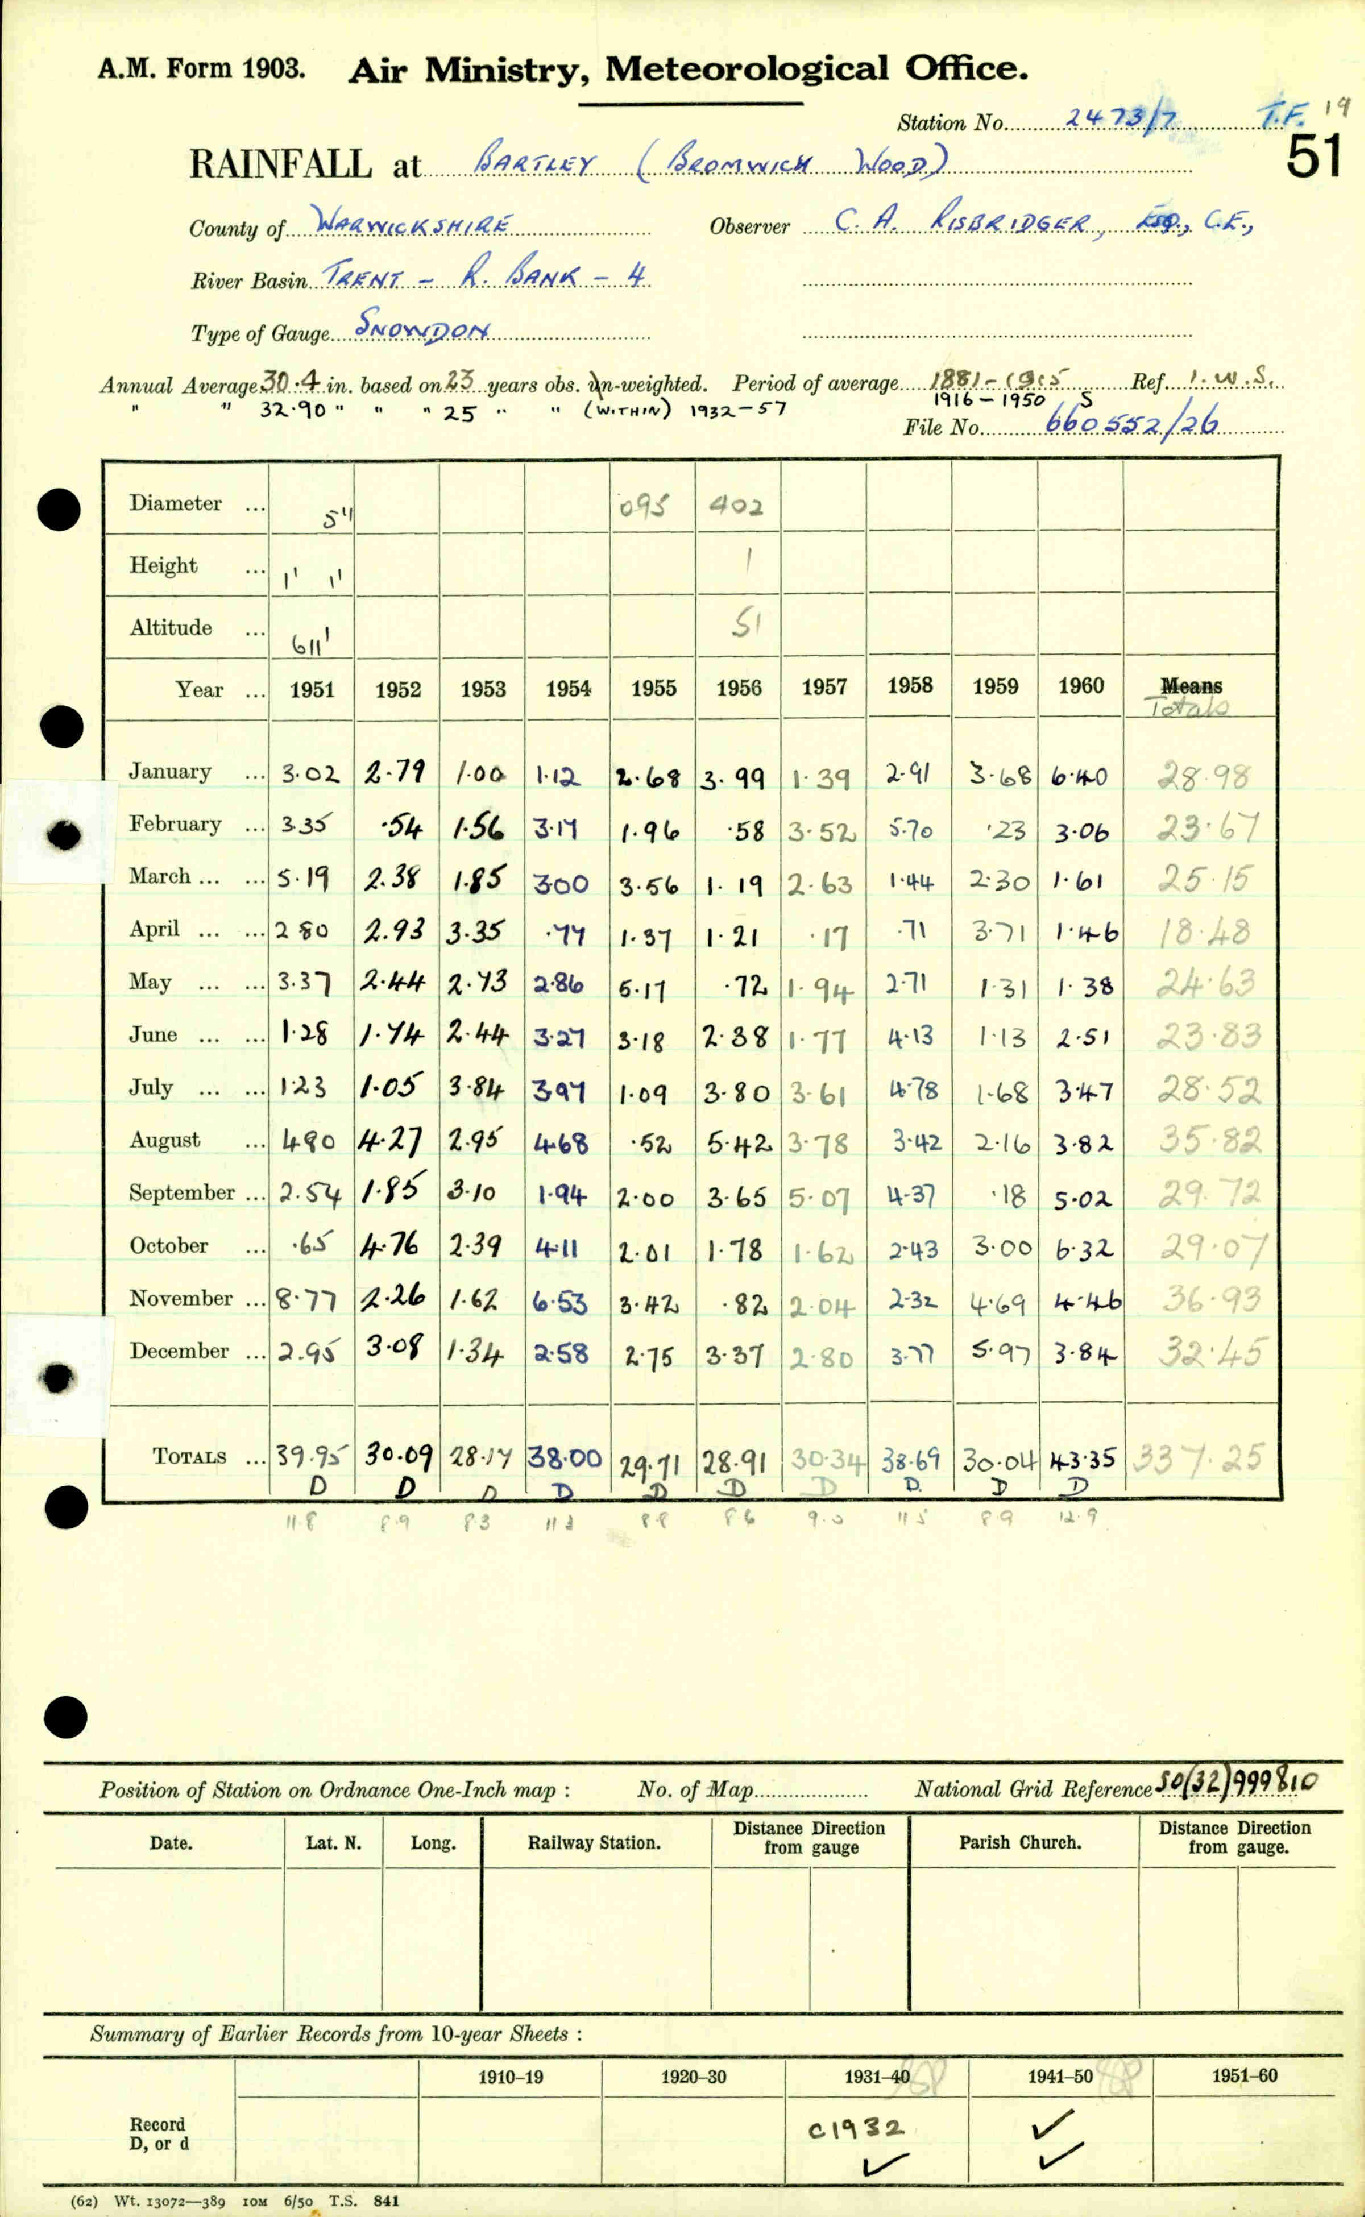 A.M. Form 1903. Air Ministry, Meteorological Office.
Station No. 2473/7 T.F. 19
51
RAINFALL at BARTLEY (BROMWICH WOOD)
County of WARWICKSHIRE Observer C. A. RISBRIDGER, ESQ., C.E.,
River Basin TRENT - R. BANK - 4
Type of Gauge SNOWDON
Annual Average 30.4 in. based on 23 years obs. un-weighted. Period of average 1881-1915 Ref. I.W.S.
" " 32.90 " " " 25 " " (WITHIN) 1932-57 1916-1950 S
File No. 660552/26
Diameter ... 5" 095 402
Height ... 1' 1' 1
Altitude ... 611' 51
Year ... 1951 1952 1953 1954 1955 1956 1957 1958 1959 1960 Means
Totals
January ... 3.02 2.79 1.00 1.12 2.68 3.99 1.39 2.91 3.68 6.40 28.98
February ... 3.35 .54 1.56 3.17 1.96 .58 3.52 5.70 .23 3.06 23.67
March ... ... 5.19 2.38 1.85 3.00 3.56 1.19 2.63 1.44 2.30 1.61 25.15
April ... ... 2.80 2.93 3.35 .77 1.37 1.21 .17 .71 3.71 1.46 18.48
May ... ... 3.37 2.44 2.73 2.86 5.17 .72 1.94 2.71 1.31 1.38 24.63
June ... ... 1.28 1.74 2.44 3.27 3.18 2.38 1.77 4.13 1.13 2.51 23.83
July ... ... 1.23 1.05 3.84 3.97 1.09 3.80 3.61 4.78 1.68 3.47 28.52
August ... 4.80 4.27 2.95 4.68 .52 5.42 3.78 3.42 2.16 3.82 35.82
September ... 2.54 1.85 3.10 1.94 2.00 3.65 5.07 4.37 .18 5.02 29.72
October ... .65 4.76 2.39 4.11 2.01 1.78 1.62 2.43 3.00 6.32 29.07
November ... 8.77 2.26 1.62 6.53 3.42 .82 2.04 2.32 4.69 4.46 36.93
December ... 2.95 3.08 1.34 2.58 2.75 3.37 2.80 3.77 5.97 3.84 32.45
TOTALS ... 39.95 30.09 28.17 38.00 29.71 28.91 30.34 38.69 30.04 43.35 337.25
D D D D D D D D. D D
11.8 8.9 8.3 11.3 8.8 8.6 9.0 11.5 8.9 12.9
Position of Station on Ordnance One-Inch map : No. of Map National Grid Reference SO(32)999810
Date. Lat. N. Long. Railway Station. Distance Direction from gauge Parish Church. Distance Direction from gauge.
Summary of Earlier Records from 10-year Sheets :
1910–19 1920–30 1931–40 1941–50 1951–60
Record D, or d C1932 ✓ ✓ ✓
(62) Wt. 13072—389 10M 6/50 T.S. 841